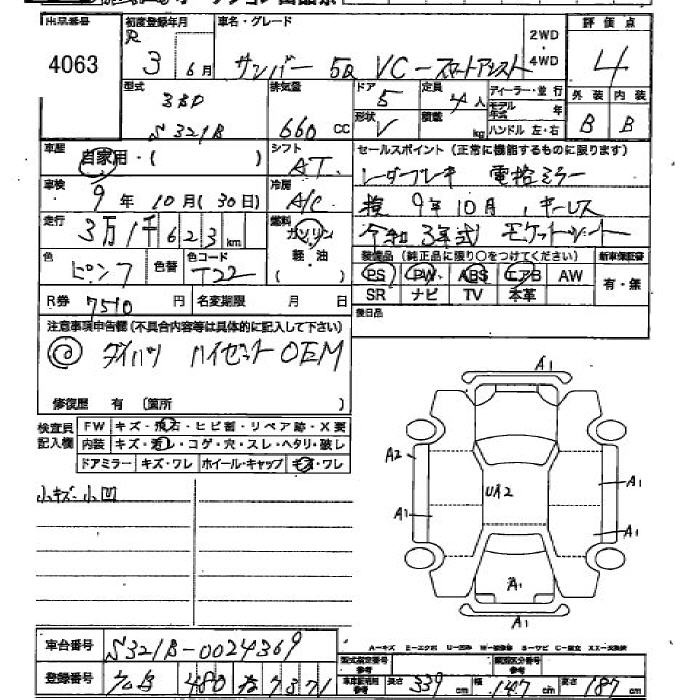 出品番号 初度登録年月 車名・グレード 2WD 評価点
4063 R3 6月 サンバー 5D VC-スマートアシスト 4WD 4
型式 排気量 ドア 定員 ディーラー・並行 外装 内装
3BD 5 4人 モデル年式 年
S321B 660 CC 形状 V 積載 kg ハンドル 左・右 B B
車歴 自家用・( ) シフト AT セールスポイント(正常に機能するものに限ります)
車検 9年 10月(30日) 冷房 A/C レーダーブレーキ 電格ミラー
検 9年10月, キーレス
走行 3万1千623km 燃料 ガソリン 令和3年式 モケットシート
軽・油 装備品(純正品に限り○をつけてください) 新車保証書
色 ピンク 色替 色コード T22 ( ) PS PW ABS エアB AW 有・無
SR ナビ TV 本革
R券 7510 円 名変期限 月 日 後日品
注意事項申告欄(不具合内容等は具体的に記入して下さい)
ダイハツ ハイゼット OEM
修復歴 有 (箇所 )
検査員記入欄 FW キズ・飛石・ヒビ割・リペア跡・X要
内装 キズ・汚レ・コゲ・穴・スレ・ヘタリ・破レ
ドアミラー キズ・ワレ ホイール・キャップ キズ・ワレ
小キズ 小凹
A1
A2
UA2
A1
A1
A1
A1
A1
車台番号 S321B-0024369
A-キズ E-エクボ U-凹み W-補修跡 S-サビ C-腐食 XX-交換済
型式指定番号 参考 類別区分番号 参考
登録番号 480 7371 車検証明用 参考 長さ 339 cm 幅 147 cm 高さ 187 cm